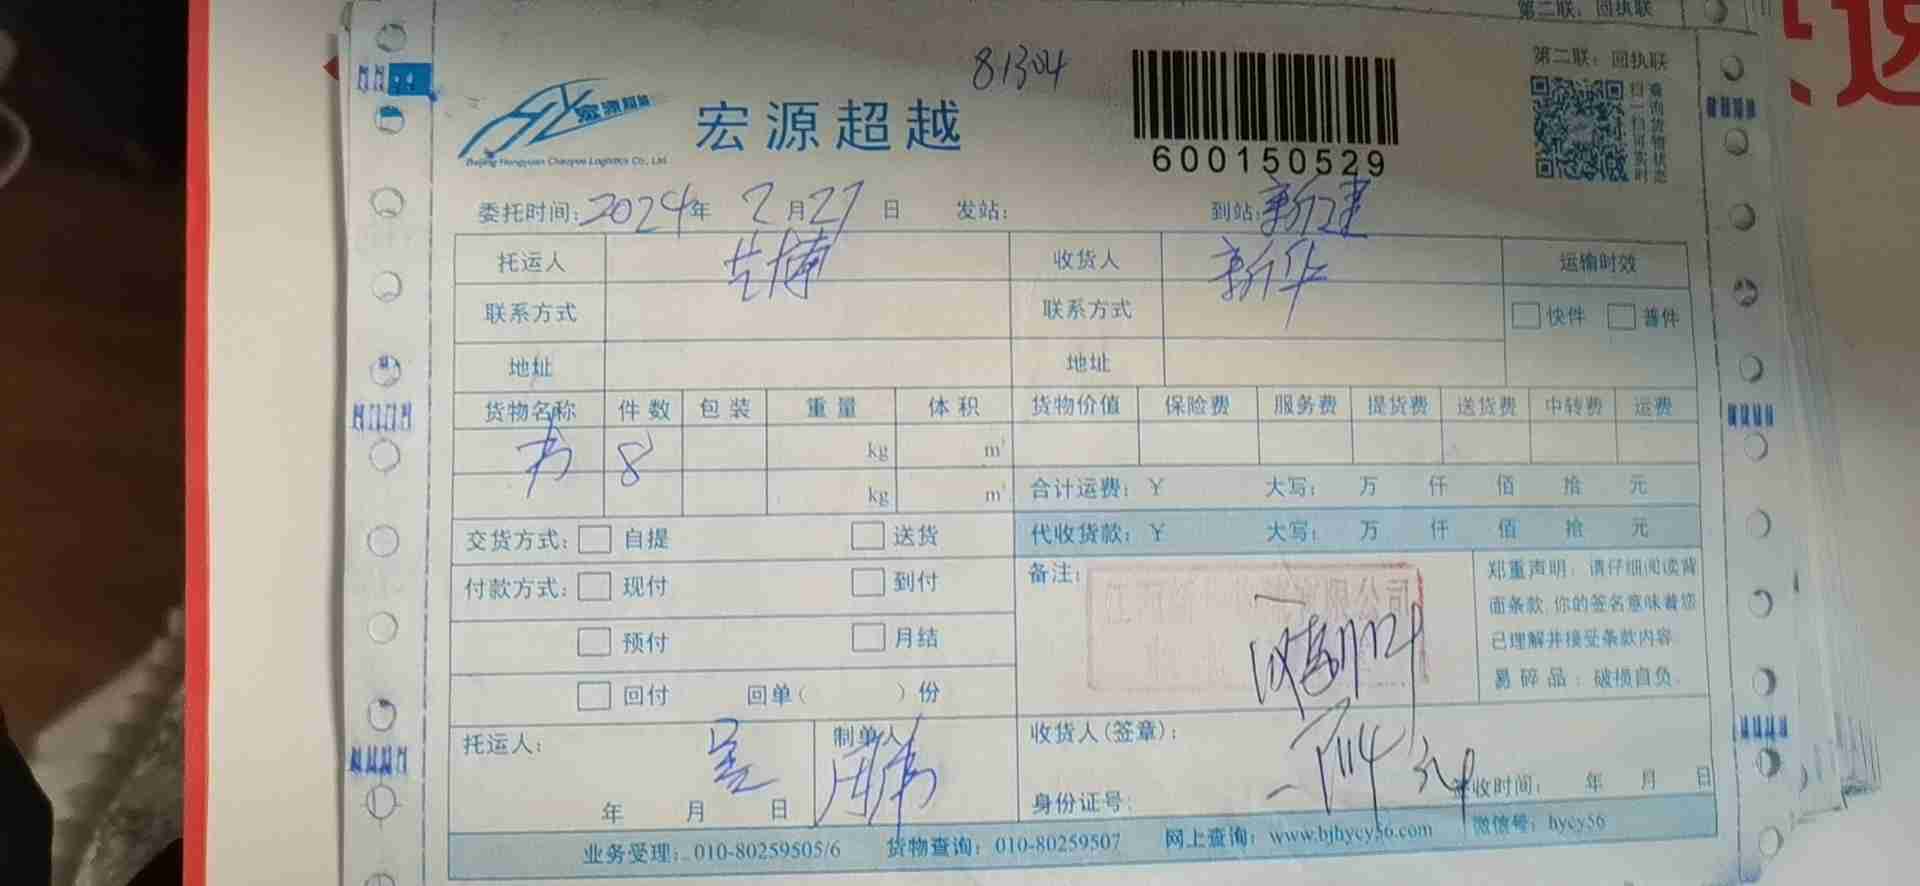 第二联：回执联
81304
宏源超越
Beijing Hongyuan Chaoyue Logistics Co., Ltd.
宏源超越
600150529
第二联：回执联
扫一扫可实时
查询货物状态
委托时间：2024年 2月27日 发站： 到站：新建
托运人 收货人 新华 运输时效
联系方式 联系方式 快件 普件
地址 地址
货物名称 件数 包装 重量 体积 货物价值 保险费 服务费 提货费 送货费 中转费 运费
书 8 kg m³
kg m³ 合计运费：￥ 大写： 万 仟 佰 拾 元
交货方式： 自提 送货 代收货款：￥ 大写： 万 仟 佰 拾 元
付款方式： 现付 到付 备注： 郑重声明：请仔细阅读背
面条款，你的签名意味着您
预付 月结 已理解并接受条款内容
回付 回单（ ）份 易碎品：破损自负.
托运人： 制单人 收货人(签章)：
年 月 日 身份证号： 签收时间： 年 月 日
业务受理：010-80259505/6 货物查询：010-80259507 网上查询：www.bjhycy56.com 微信号：hycy56